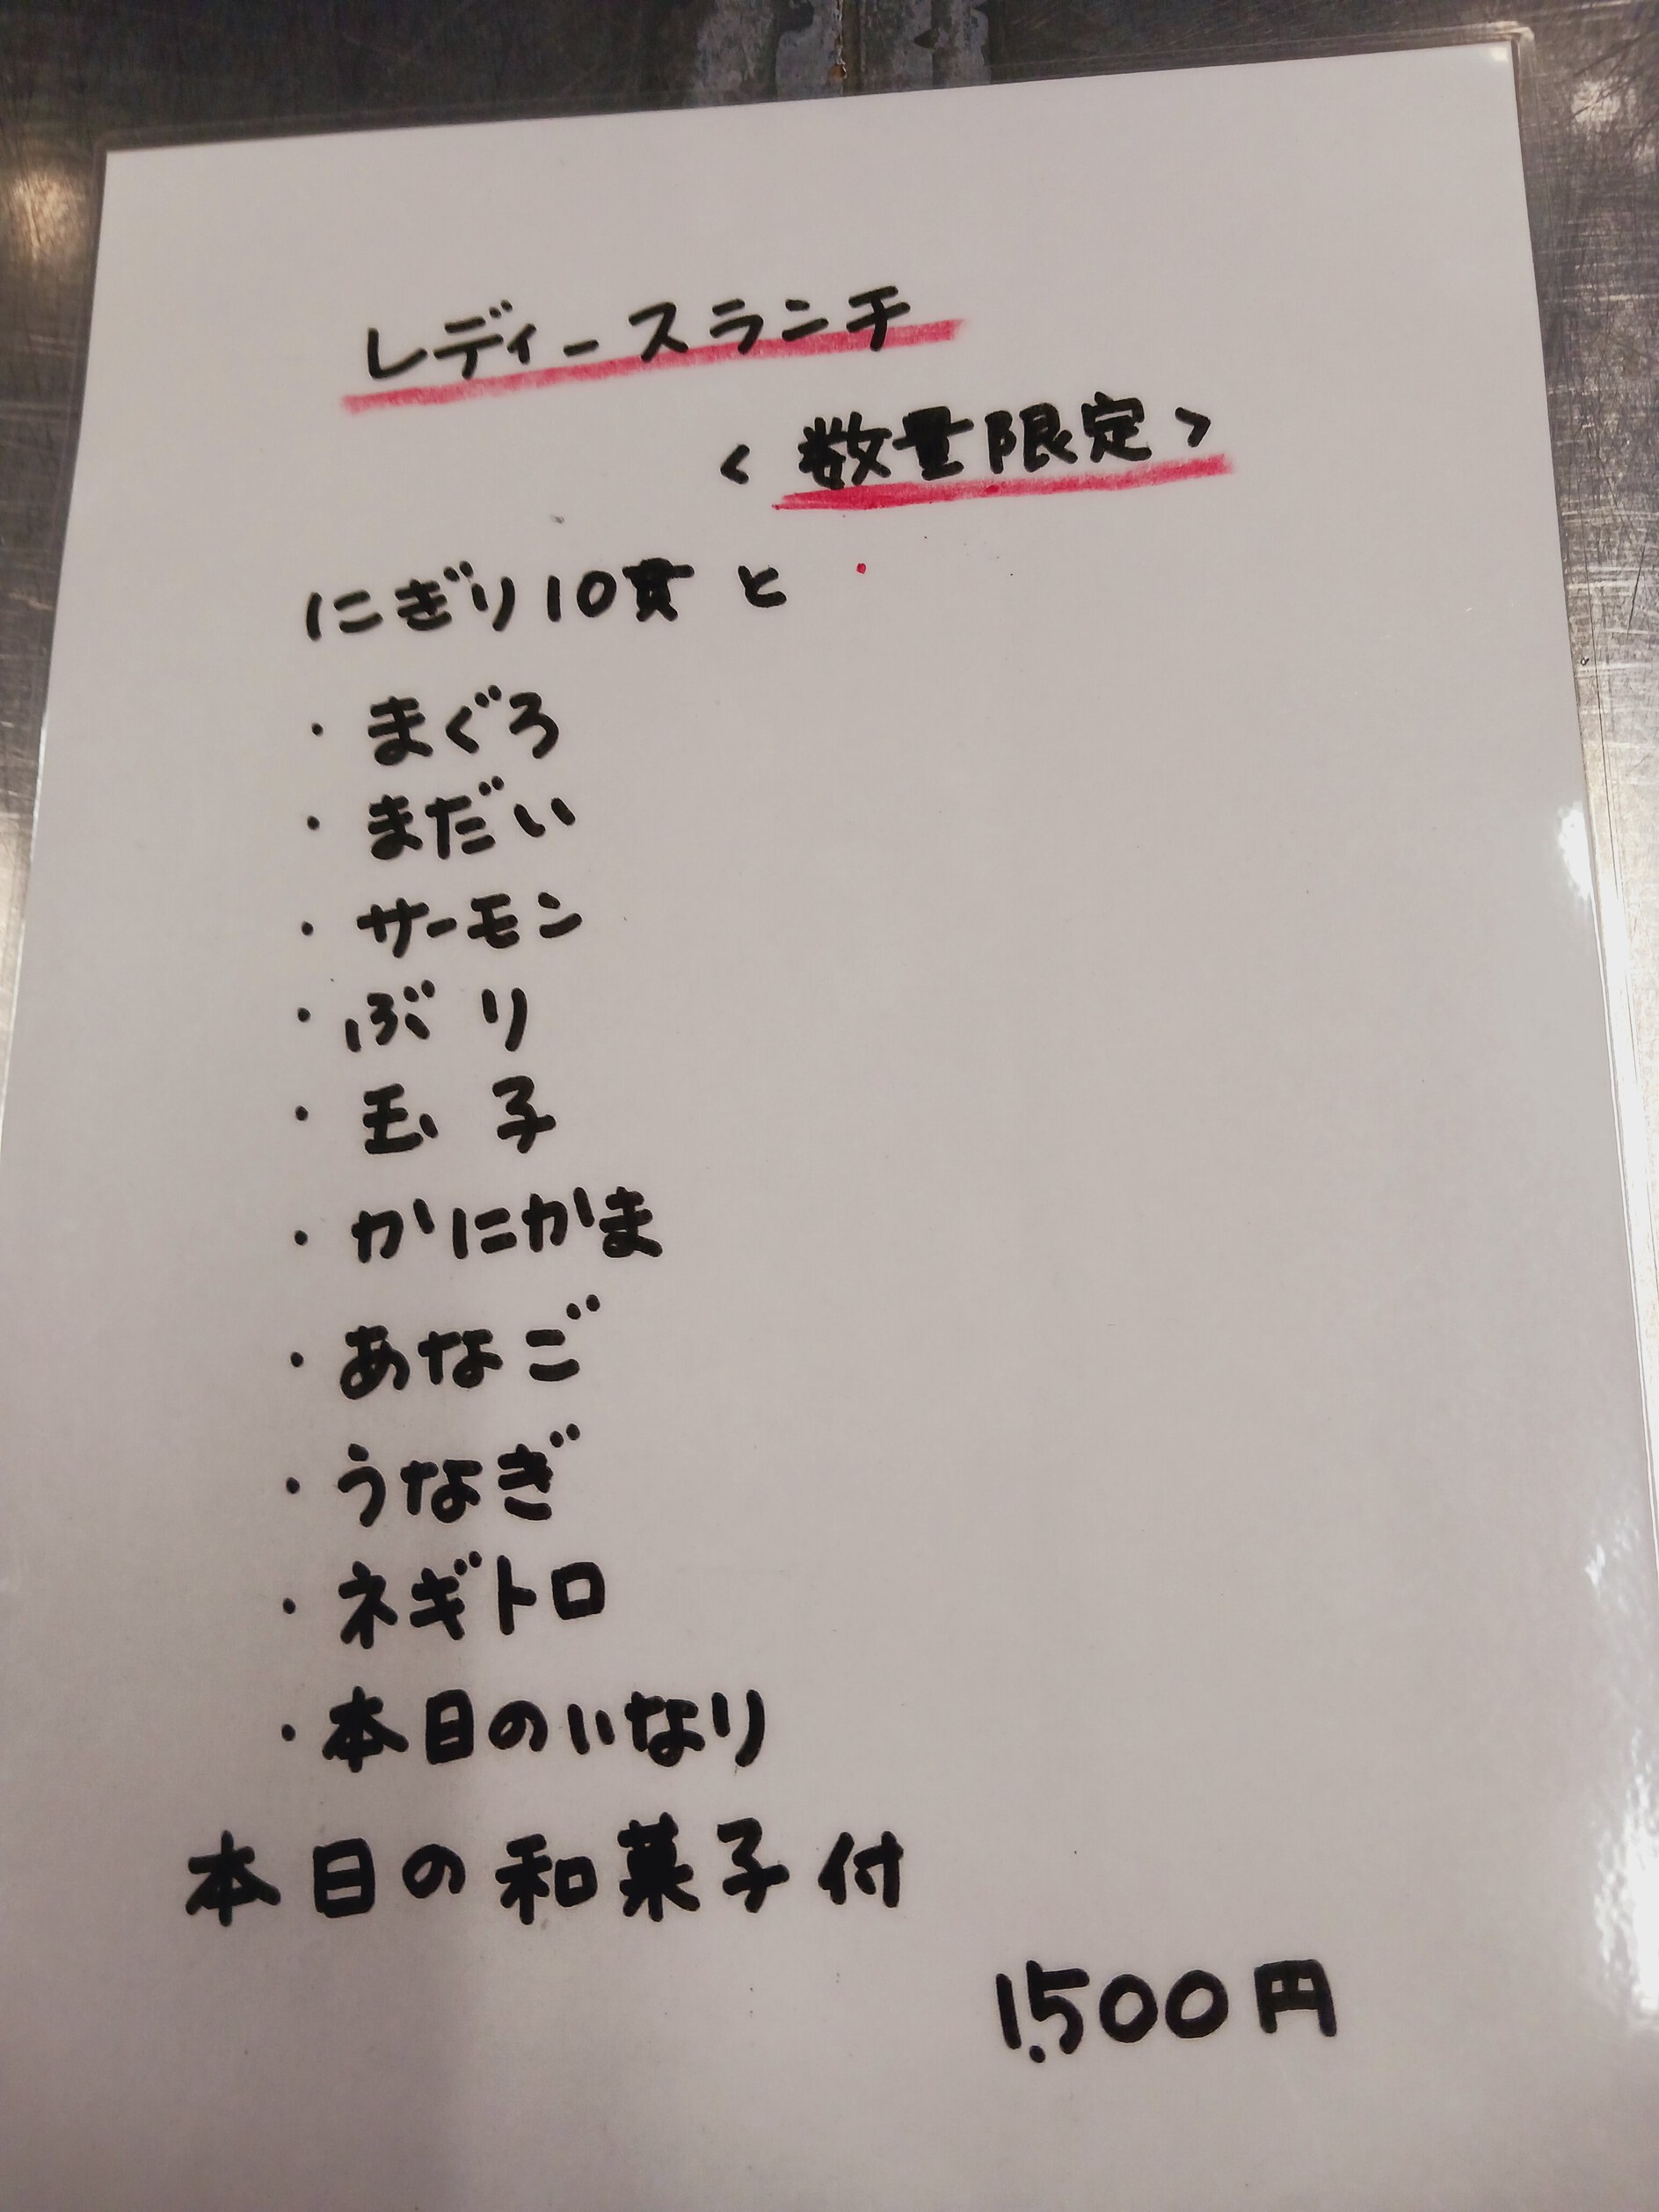 レディースランチ
<数量限定>
にぎり10貫 と
・まぐろ
・まだい
・サーモン
・ぶり
・玉子
・かにかま
・あなご
・うなぎ
・ネギトロ
・本日のいなり
本日の和菓子付
1,500円